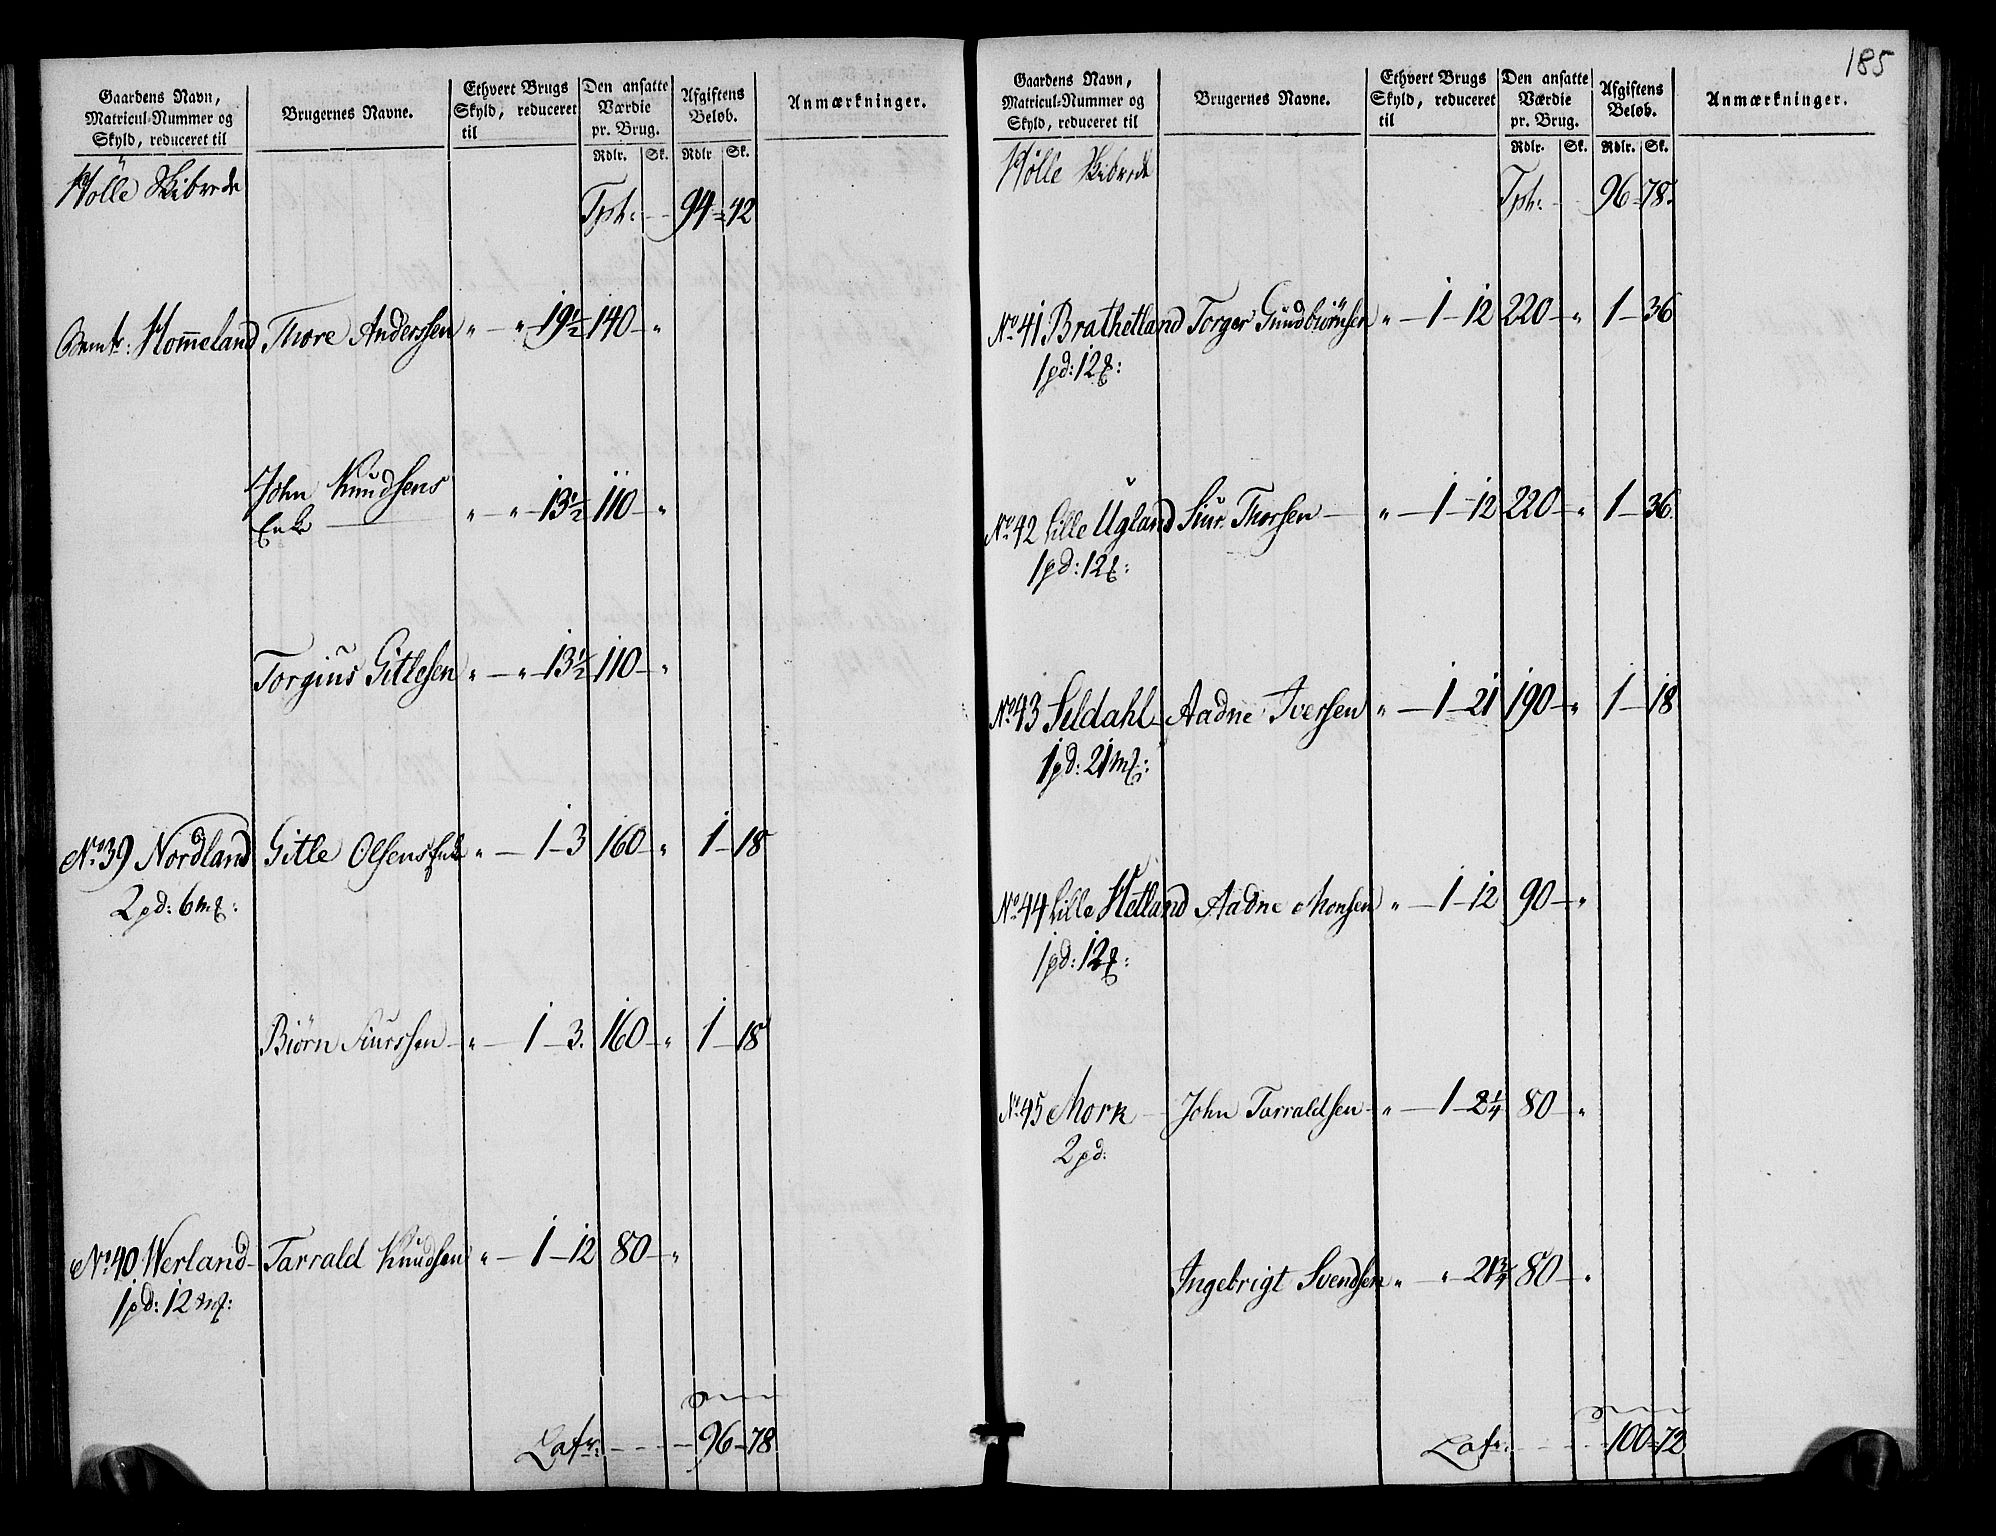 Gaardens Navn,
Matricul-Nummer og
Skyld, reduceret til
Brugernes Navne.
Ethvert Brugs
Skyld, reduceret
til
Den ansatte
Værdie
pr. Brug.
Rdlr. Sk.
Afgiftens
Beløb.
Rdlr Sk.
Anmærkninger.
Hölle Skibrede
Tpt: 94 = 42
Hom̄eland Thore Anderssen " " 19½ 140 "
John Knudsens
Enke " " 13½ 110 "
Torgius Gitlesen " " 13½ 110 "
No 39 Nordland Gitle Olsens Enke " 1 3 160 " 1 18
2 pd: 6 mℓ:
Biörn Siurssen " 1 3. 160 " 1 18
No 40 Werland Tarrald Knudsen " 1 12 80 "
1 pd: 12 mℓ:
Latr: 96 78
185
Gaardens Navn,
Matricul-Nummer og
Skyld, reduceret til
Brugernes Navne.
Ethvert Brugs
Skyld, reduceret
til
Den ansatte
Værdie
pr. Brug.
Rdlr. Sk.
Afgiftens
Beløb.
Rdlr. Sk.
Anmærkninger.
Hölle Skibrede
Tpt: 96 78.
No 41 Brathetland Torger Gundbiörnsen " 1 12 220 " 1 36
1 pd: 12 ℔:
No 42 Lille Ugland Siur Thorsen " 1 12 220 " 1 36.
1 pd: 12 ℔:
No 43 Seldahl Aadne Iversen " 1 21 190 " 1 18
1 pd: 21 mℓ:
No 44 Lille Hetland Aadne Monsen " 1 12 90 "
1 pd: 12 ℔:
No 45 Mork John Tarraldsen " 1 2¼ 80 "
2 pd:
Ingebrigt Svendsen " " 21¾ 80 "
Latr: 100 72